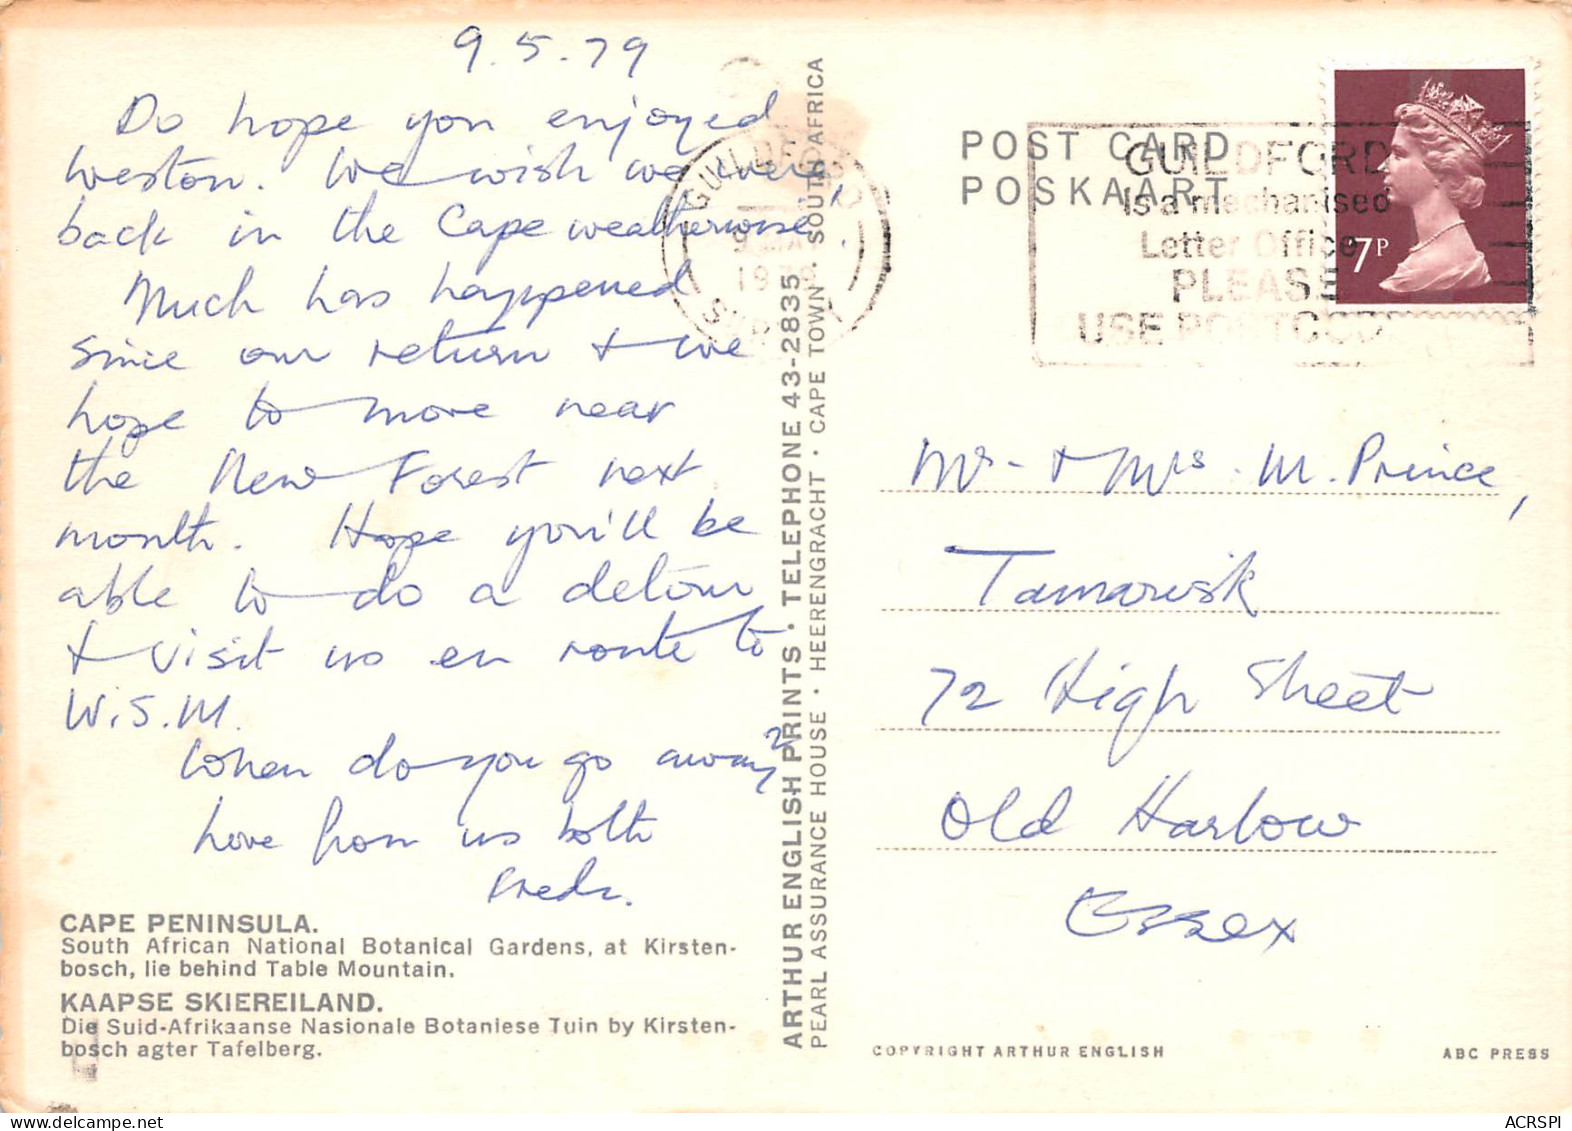 9.5.79
Do hope you enjoyed
Weston. We wish we were
back in the Cape weatherwise,
Much has happened
since our return & we
hope to move near
the New Forest next
month. Hope you'll be
able to do a detour
& visit us en route to
W.S.M.
When do you go away?
Love from us both
CAPE PENINSULA.
South African National Botanical Gardens, at Kirsten-
bosch, lie behind Table Mountain.
KAAPSE SKIEREILAND.
Die Suid-Afrikaanse Nasionale Botaniese Tuin by Kirsten-
bosch agter Tafelberg.
ARTHUR ENGLISH PRINTS · TELEPHONE 43-2835
PEARL ASSURANCE HOUSE · HEERENGRACHT · CAPE TOWN · SOUTH AFRICA
GUILDFORD
9 MA
19
POST CARD
POSKAART
GUILDFORD
Is a mechanised
Letter Office
PLEASE
USE POSTCOD
7P
Mr. & Mrs. M. Prince,
Tamarisk
72 High Street
Old Harlow
Essex
COPYRIGHT ARTHUR ENGLISH
ABC PRESS
ACRSPI